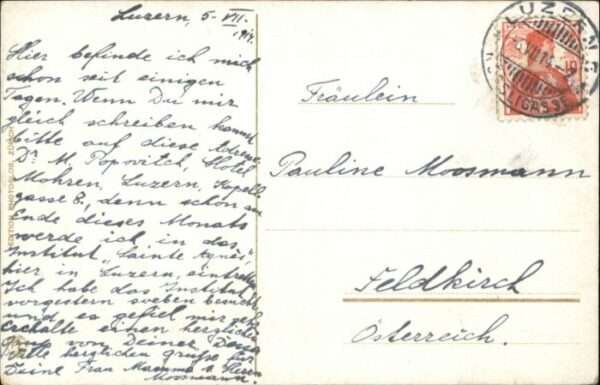 Luzern, 5-VII.
1914.
Hier befinde ich mich
schon seit einigen
Tagen. Wenn Du mir
gleich schreiben kannst
bitte auf diese Adresse
Dr. M. Popovitch, Hotel
Mohren, Luzern, Kapell-
gasse 8, denn schon am
Ende dieses Monats
werde ich in das
Institut „Sainte Agnes",
hier in Luzern, eintreten
Ich habe das Institut
vorgestern soeben besucht
und es gefiel mir sehr
Erhalte einen herzlichen
von Deiner
viele herzlichen grüße für
Deine Frau Mamma & Herrn
Moosmann.
EDITION PHOTOGLOB, ZÜRICH
Fräulein
Pauline Moosmann
Feldkirch
Österreich.
LUZERN
10